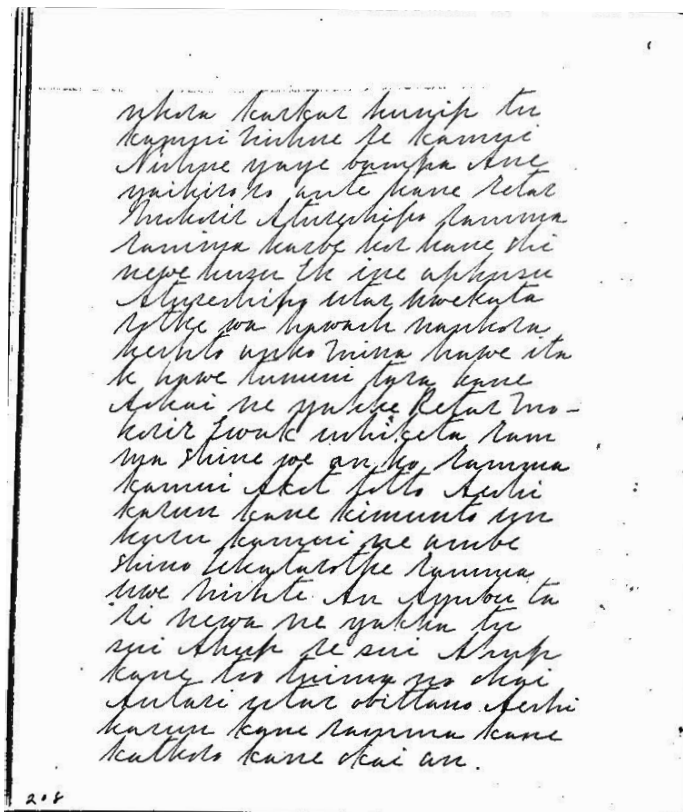 nkora karkar hunip tu
kamui nishne re kamui
Nishne yaye bumpa Ane
yaikiroro ante kane retar
Mokorir Atureshipo ramma
ramma karbe kor kane shi
newe kusu Ek ine apkusu
Atureshipo utar uwekata
rotke wa hawash nankora
keshto anko mina hawe ita
k hawe tununi tara kane
Aokai ne yakke Retar Mo-
korir Iwak ushiketa ram
ma shine pe an ko ramma
kamui Akor totto Aeshi
karun kane kimunto un
kuru kamui ne ambe
shino ekatarotke ramma
uwe nishte An Ayubu ta
ri newa ne yakka tu
sui Ahup re sui Ahup
kane tuima no okai
Autari utar obittano Aeshi
karun kane ramma kane
katkoro kane okai an.
208